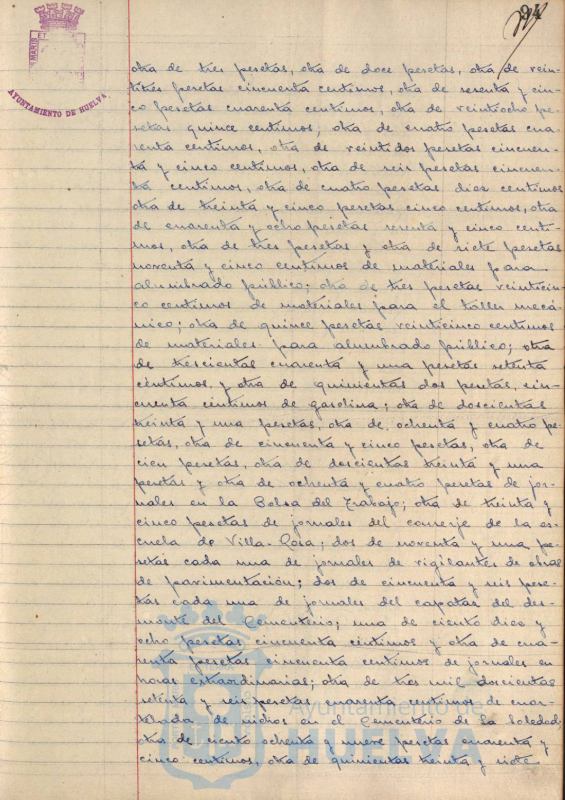 94
MARIS ET
AYUNTAMIENTO DE HUELVA
otra de tres pesetas, otra de doce pesetas, otra de vein-
titrés pesetas cincuenta centimos, otra de sesenta y cin-
co pesetas cuarenta centimos, otra de veintiocho pe-
setas quince centimos, otra de cuatro pesetas cua-
renta centimos, otra de veintidos pesetas cincuen-
ta y cinco centimos, otra de seis pesetas cincuen-
ta centimos, otra de cuatro pesetas diez centimos
otra de treinta y cinco pesetas cinco centimos, otra
de cuarenta y ocho pesetas sesenta y cinco centi-
mos, otra de tres pesetas y otra de siete pesetas
noventa y cinco centimos de materiales para
alumbrado público; otra de tres pesetas veinticin-
co centimos de materiales para el taller mecá-
nico; otra de quince pesetas veinticinco centimos
de materiales para alumbrado público; otra
de trescientas cuarenta y una pesetas setenta
centimos, y otra de quinientas dos pesetas, cin-
cuenta centimos de gasolina; otra de doscientas
treinta y una pesetas, otra de ochenta y cuatro pe-
setas, otra de cincuenta y cinco pesetas, otra de
cien pesetas, otra de doscientas treinta y una
pesetas y otra de ochenta y cuatro pesetas de jor-
nales en la Bolsa del Trabajo; otra de treinta y
cinco pesetas de jornales del conserje de la es-
cuela de Villa-Rosa; dos de noventa y una pe-
setas cada una de jornales de vigilantes de obras
de pavimentación; dos de cincuenta y seis pese-
tas cada una de jornales del capataz del des-
monte del Cementerio; una de ciento diez y
ocho pesetas cincuenta centimos y otra de cua-
renta pesetas cincuenta centimos de jornales en
horas extraordinarias; otra de tres mil doscientas
setenta y seis pesetas cuarenta centimos de cuar-
telada de nichos en el Cementerio de la Soledad;
otra de ciento ochenta y nueve pesetas cuarenta y
cinco centimos, otra de quinientas treinta y siete
Ayuntamiento de
HUELVA